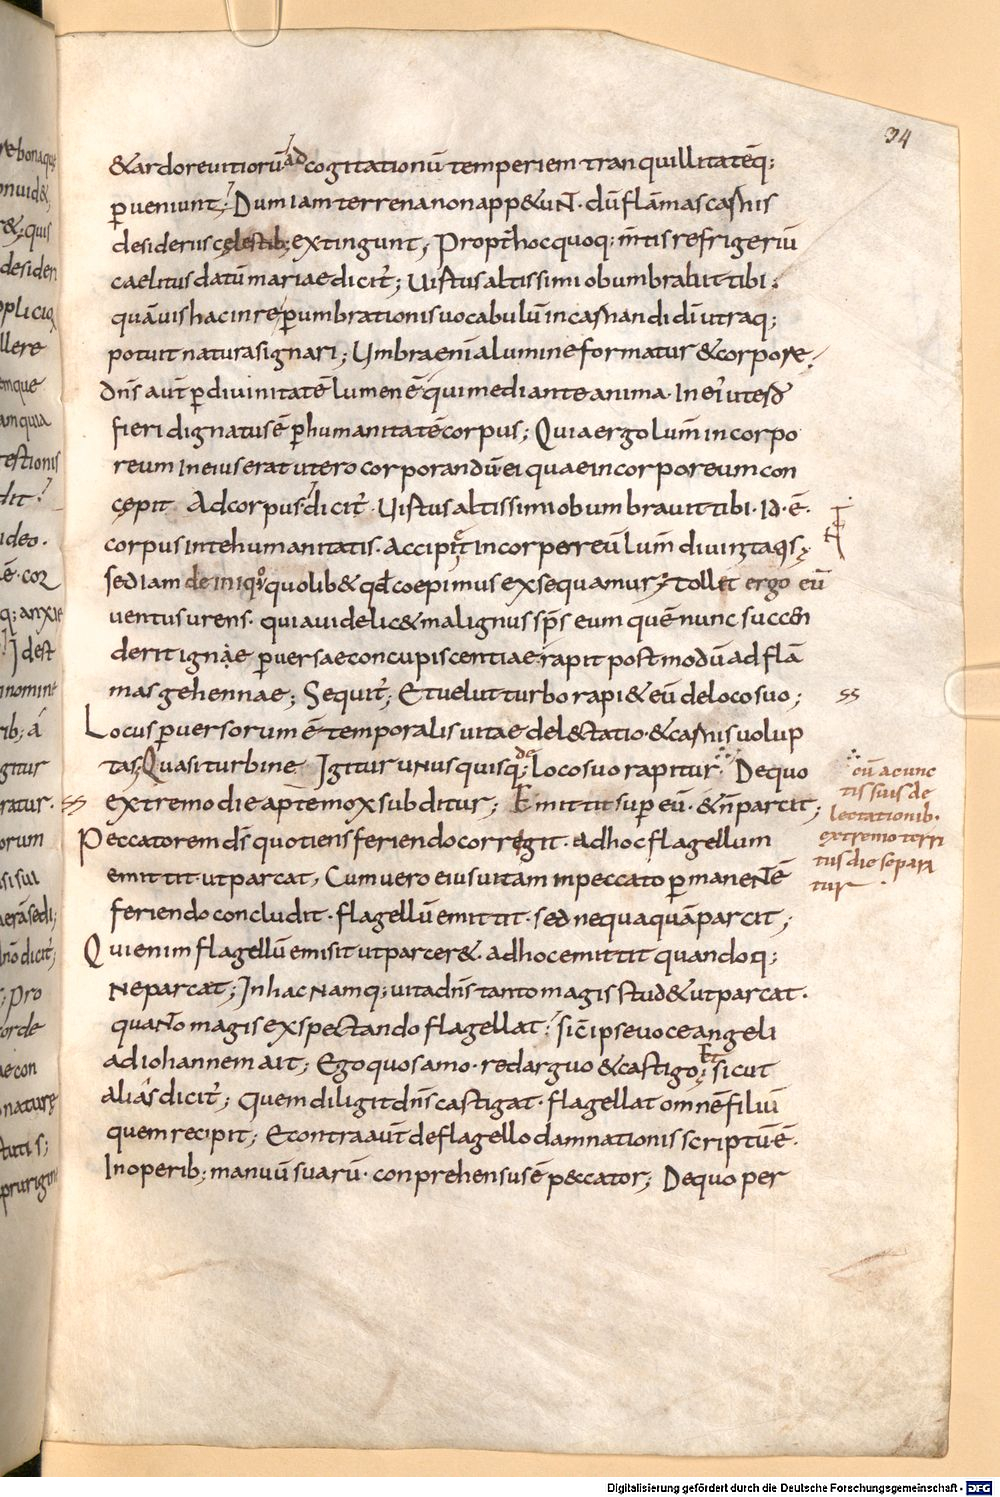 34
&ardoreuitiorū ad cogitationū temperiem tranquillitatēq;
ꝑueniunt; Dum iam terrena non app&uNt. dū flāmas carnis
desideriis cęlestib; extingunt; Propt̄ hoc quoq; mtīs refrigeriū
caelitus datū mariae dicit̄; Uirtus altissimi obumbrabit tibi;
quāuis hac in re ꝑ umbrationis uocabulū incarnandi dī utraq;
potuit natura signari; Umbra enī a lumine formatur & corpore;
Dn̄s aut̄ ꝑ diuinitatē lumen ē. qui mediante anima. In ei' utero
fieri dignatus ē ꝑ humanitatē corpus; Quia ergo lum̄ incorpo
reum In eius erat utero corporandū. ei quae incorporeum con
cepit Ad corpus. dicit̄. Uirtus altissimi obumbrauit tibi. Id. ē.
corpus in te humanitatis. Accipi&t incorporeū lum̄ diuinitatis;
sed iam de iniquo quolib& qd̄ coepimus exsequamur; tollet ergo eū
uentus urens. qui auidelic& malignus sp̄s eum quē nunc succen
derit igne ꝑuersae concupiscentiae. rapit postmodū ad flā
mas gehennae; Sequit̄; Et uelut turbo rapi& eū de loco suo;
ss
Locus ꝑuersorum ē temporalis uitae del&tatio. & carnis uolup
tas; Quasi turbine Igitur uNus quisq; de loco suo rapitur. De quo
cū a cunc
tis suis de
lectationib.
extremo terri
tus die separa
tur.
ss extremo die aptē mox subditur; Emittit sup eū. & n̄ parcit;
Peccatorem dī quotiens feriendo corregit. ad hoc flagellum
emittit. ut parcat, Cum uero eius uitam in peccato ꝑmaneNtē
feriendo concludit. flagellū emittit. sed nequaquā parcit;
Qui enim flagellū emisit ut parcer&. ad hoc emittit quandoq;
Ne parcat; In hac Namq; uita dn̄s tanto magis stud& ut parcat.
quaNto magis exspectando flagellat; sic̄ ipse uoce angeli
ad iohannem ait; Ego quos amo. redarguo & castigo; Et sicut
alias dicit̄; Quem diligit dn̄s castigat. flagellat omnē filiū
quem recipit; Econtra aut̄ de flagello damnationis scriptū ē.
In operib; manuū suarū. conprehensus ē peccator; De quo per
Digitalisierung gefördert durch die Deutsche Forschungsgemeinschaft - DFG